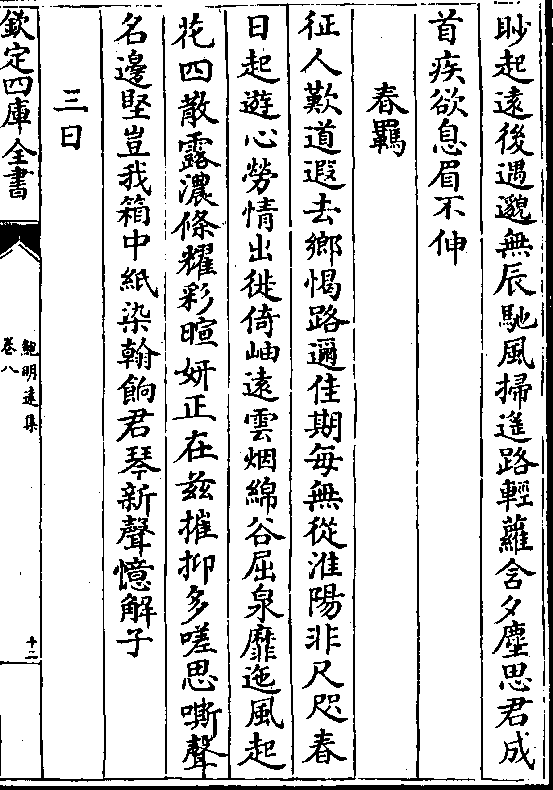 眇起遠後遇邈無辰馳風掃遥路輕蘿含夕塵思君成
首疾欲息眉不伸
春羈
征人歎道遐去鄉愒路邇佳期每無從淮陽非尺咫春
日起遊心勞情出徙倚岫遠雲烟綿谷屈泉靡迤風起
花四散露濃條耀彩暄妍正在兹摧抑多嗟思嘶聲
名邊堅豈我箱中紙染翰餉君琴新聲憶解子
三日
欽定四庫全書
鮑明遠集
卷八
十二